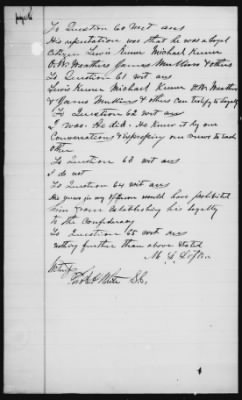 To Question 60 wit ans
His reputation was that he was a loyal
Citizen Lewis Kumer Michael Kumer
O.W. Weathers James Mullins & others
To Question 61 wit ans
Lewis Kumer Michael Kumer O.W. Weathers
& James Mullins & others can testify to loyalty
To Question 62 wit ans
I was. He did. We knew it by our
Conversations & expressing our views to each
other
To Question 63 wit ans
I do not
To Question 64 wit ans
He would in my opinion would have prohibited
him from establishing his loyalty
to the Confederacy
To Question 65 wit ans
nothing further than above stated
M. L.
Witness